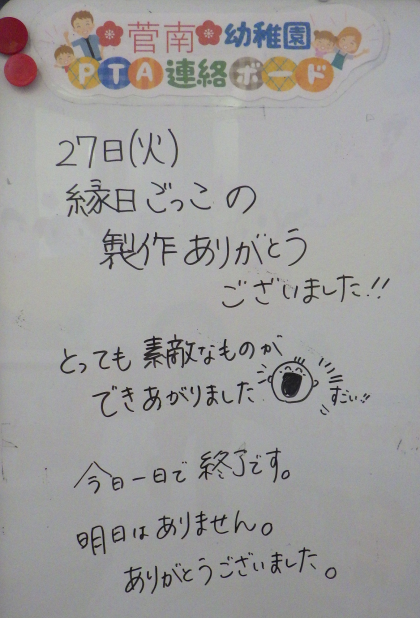 菅南幼稚園
PTA連絡ボード
27日(火)
縁日ごっこの
製作ありがとう
ございました!!
とっても素敵なものが
できあがりました
すごい!!
今日一日で終了です。
明日はありません。
ありがとうございました。